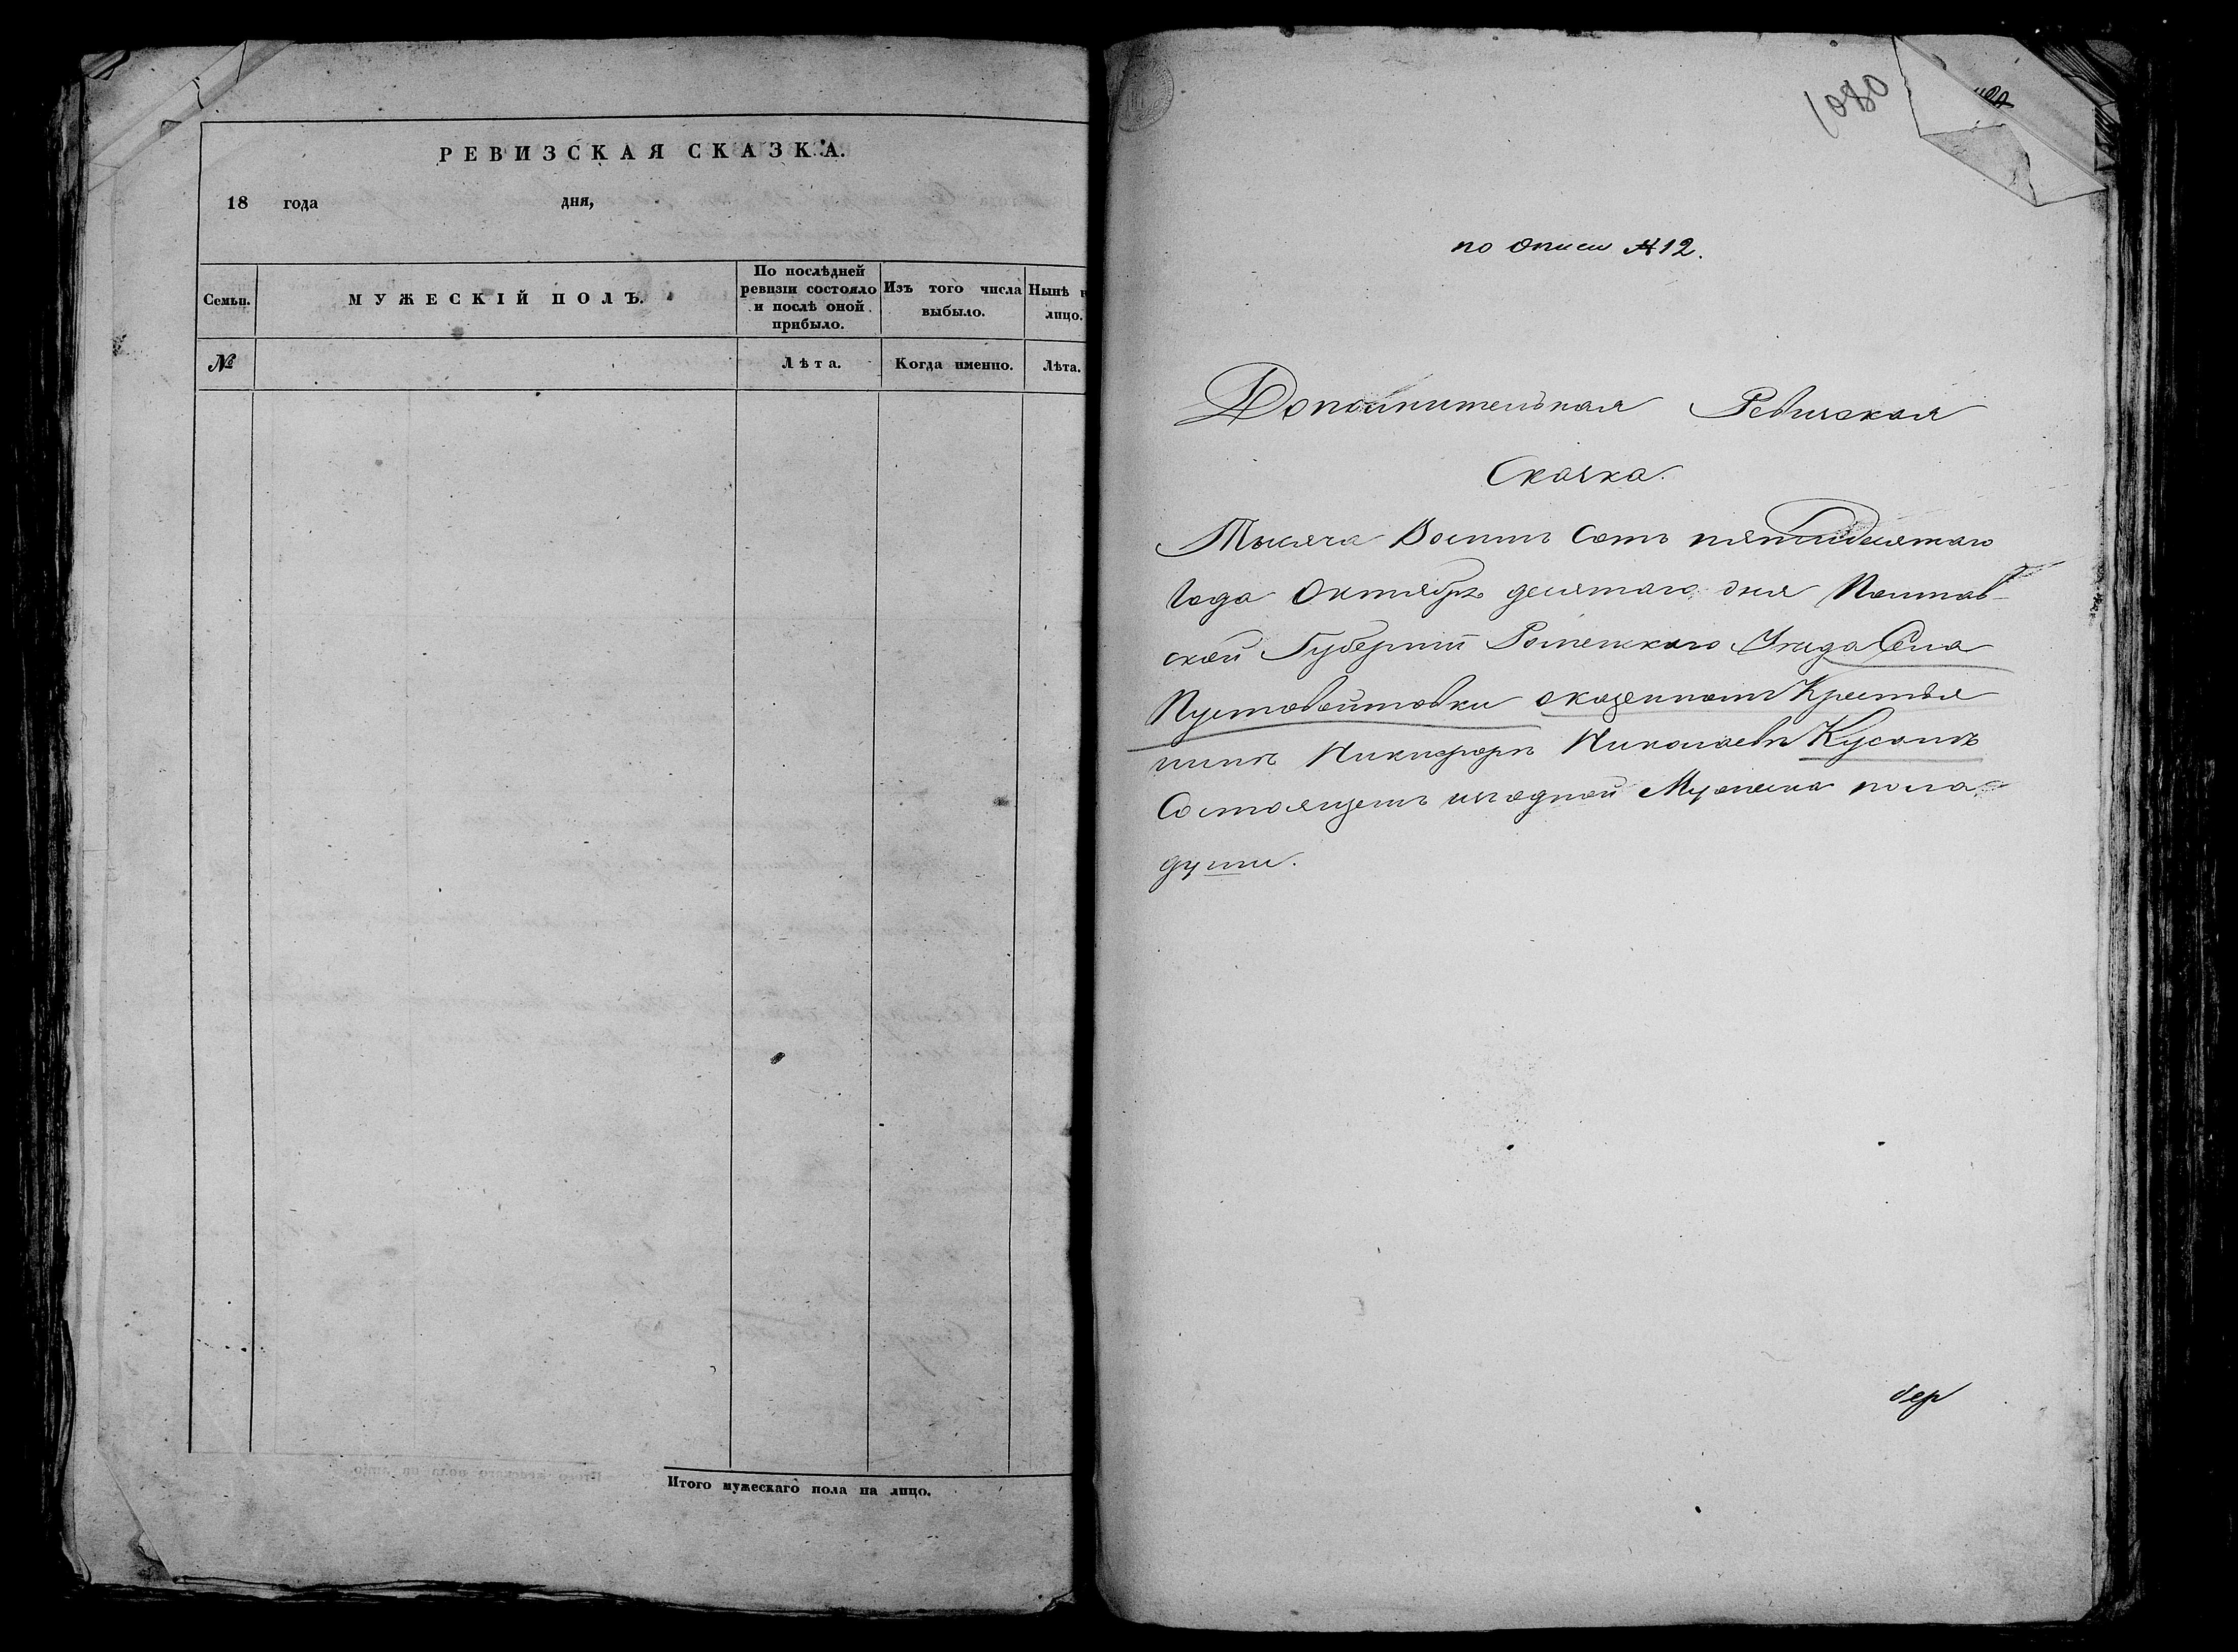 РЕВИЗСКАЯ СКАЗКА.
18 года дня,
Семьи.
МУЖЕСКІЙ ПОЛЪ.
По послѣдней
ревизіи состояло
и послѣ оной
прибыло.
Изъ того числа
выбыло.
Нынѣ
лицо.
№
Лѣта.
Когда именно.
Лѣта.
Итого мужескаго пола на лицо.
1080
по описи №12.
Дополнительная Ревизская
Сказка.
Тысяча Восемъ Сотъ пятидесятаго
Года Октября десятаго дня Полтав-
ской Губерніи Роменскаго Уезда Села
Пустовойтовки оказенномъ Крестья
нинѣ Никифорѣ Николаевѣ
Состоящемъ изъ одной Мужеска пола
души.